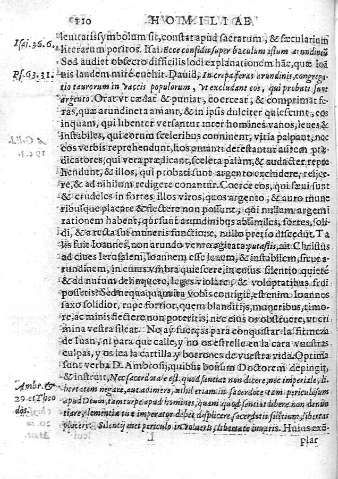 210 HOMILIAE
leuitatis symbolum sit, constat apud sacrarum, & sæcularium
Isai. 36. 6. literarum peritos. Isai. Ecce confidis super baculum istum arundineũ
Sed audiet obscuro difficilis loqui explanationem hãc, quæ Ioã
Ps. 67. 31. nis laudem mirè euehit. Dauid, Increpa feras arundinis, congrega
tio taurorum in vaccis populorum, vt excludant eos, qui probati sunt
argento. Orat vt cædat & puniat, coerceat, & comprimat fe
ras, quæ arundineta amant, & in ipsis dulciter quiescunt, eos
inquam, qui libenter versantur inter homines vanos, leues &
instabiles, qui eorum sceleribus conniuent, vitia palpant, nec
eos verbis reprehendunt, hos amant detestantur autem præ
dicatores, qui vera prædicant, scelera palàm, & audacter repre
hendunt, & illos, qui probati sunt argento excludere, reijce
re, & ad nihilum redigere conantur. Coerce eos, qui sæui sunt
& crudeles in fortes illos viros, quos argento, & auro mune
ribusque placare & flectere non possunt, qui nullam argenti
rationem habent, qui sunt arundinibus absimiles, fortes, soli
di, & a recta sui muneris functione, nullo pretio discedũt. Ta
lis fuit Ioannes, non arundo vento agitata putastis, ait Christus
ad ciues Ierosalem, Ioannem esse leuem, & instabilem, situe a-
rundinem, in cuius vmbra quiescere, in cuius silentio quietè
& ad nutum delinquere, leges violare, & voluptatibus ste
possetis? Sed nequaquam ita vobis contigit, est enim Ioannes
saxo solidior, rupe fortior, quem blanditijs, muneribus, timo-
re, ac minis flectere non poteritis, nec eius os obstruere, vt cri
mina vestra sileat. No ay fuerças para conquistar la firmeza
de Iuan, ni para que calle, y no os estrelle en la cara vuestras
culpas, y os lea la cartilla y borrones de vuestra vida. Optima
sunt verba D. Ambrosij, quibus bonum Doctorem depingit,
Ambr. ep. & instruit, Nec sacerdotale est, quod sentias non dicere, nec imperiale, li
29. et Theo bertatem negare, aut adimere, nihil etiam in sacerdote tam periculosum
dos. apud Deum, tam turpe apud homines, quam quod sentiat libere non denũ
tiare, clementia tua imperator debet, displicere, sacerdotis silentium, libertas
placere. Silentij mei periculo in volueris, libertate iuuaris. Huius exẽ
plar